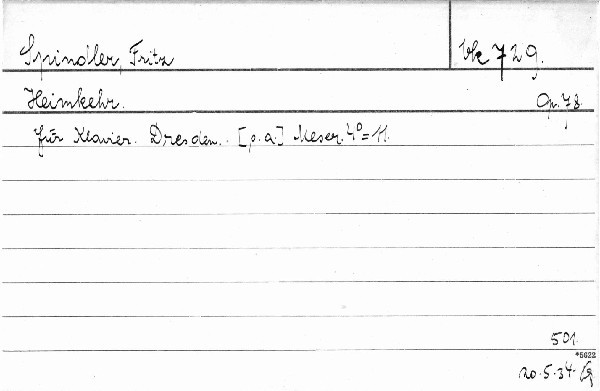 Spindler, Fritz
Mk 729.
Heimkehr. Op. 78.
für Klavier. Dresden. [p. a.] Meser. 4°= 11.
501
*5622
20.5.34.